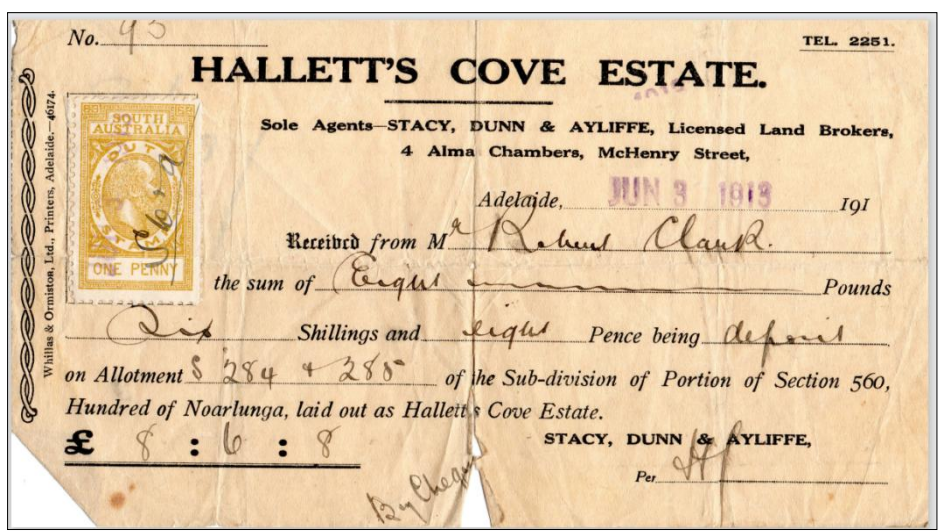 No. 93
TEL. 2251.
HALLETT'S COVE ESTATE.
Sole Agents—STACY, DUNN & AYLIFFE, Licensed Land Brokers,
4 Alma Chambers, McHenry Street,
Adelaide, JUN 3 1913 191
Received from Mr Robert Clark.
the sum of Eight Pounds
Six Shillings and eight Pence being deposit
on Allotment S 284 + 285 of the Sub-division of Portion of Section 560,
Hundred of Noarlunga, laid out as Hallett's Cove Estate.
£ 8 : 6 : 8
STACY, DUNN & AYLIFFE,
Per
By Cheque
SOUTH
AUSTRALIA
DUTY
STAMP
ONE PENNY
Whillas & Ormiston, Ltd., Printers, Adelaide.—46174.